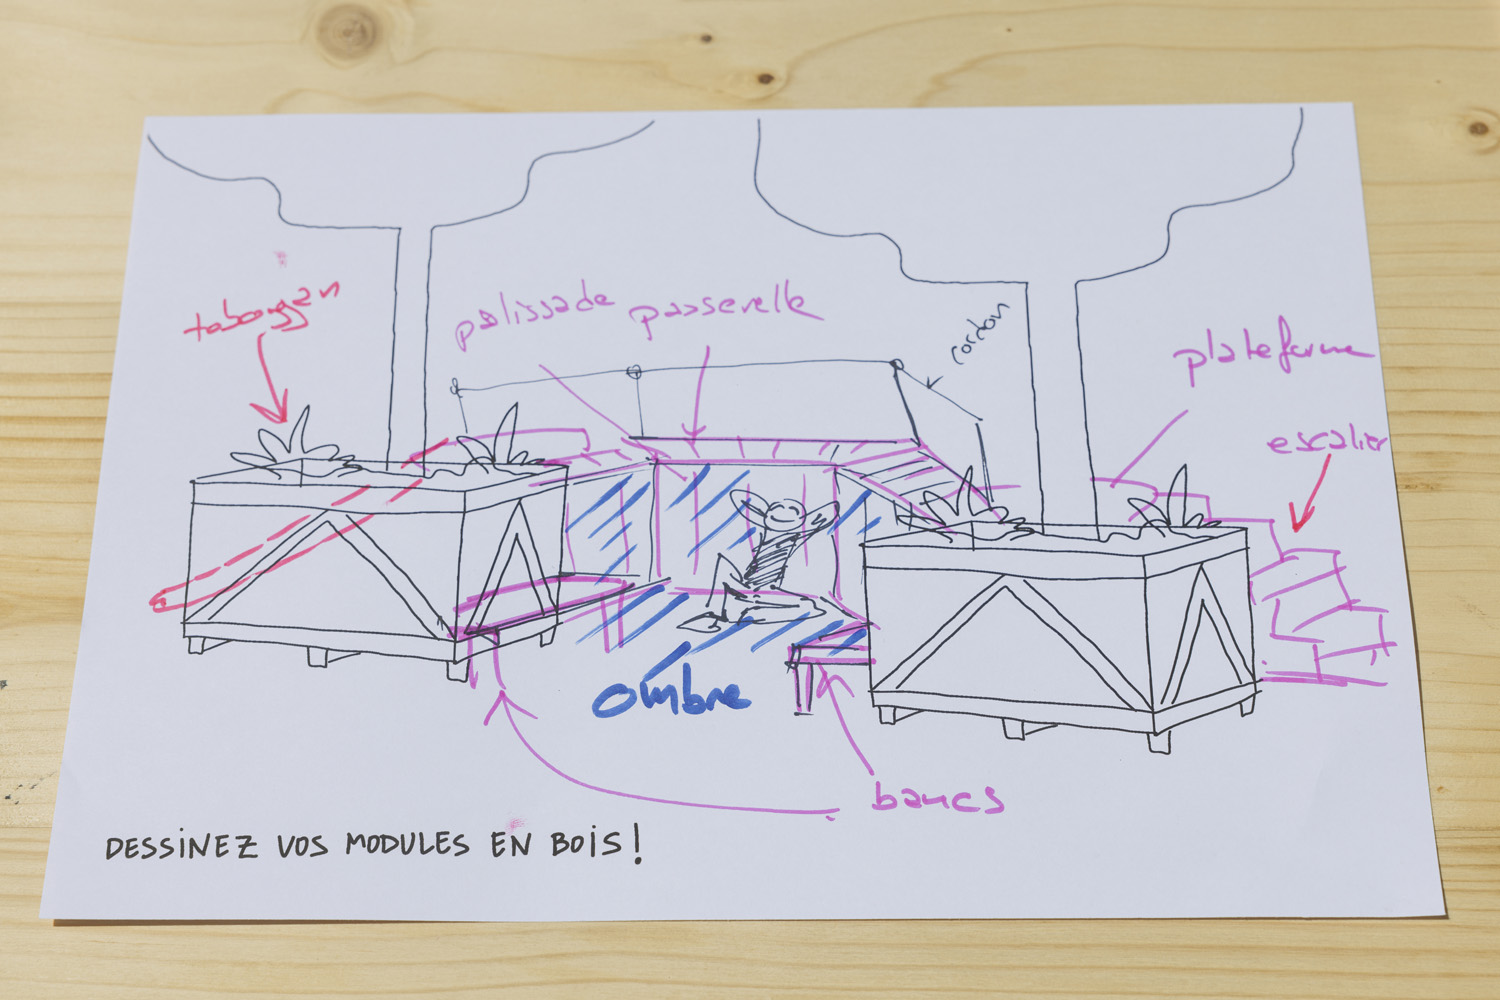 toboggan
palissade
passerelle
cordon
plateforme
escalier
ombre
bancs
DESSINEZ VOS MODULES EN BOIS!